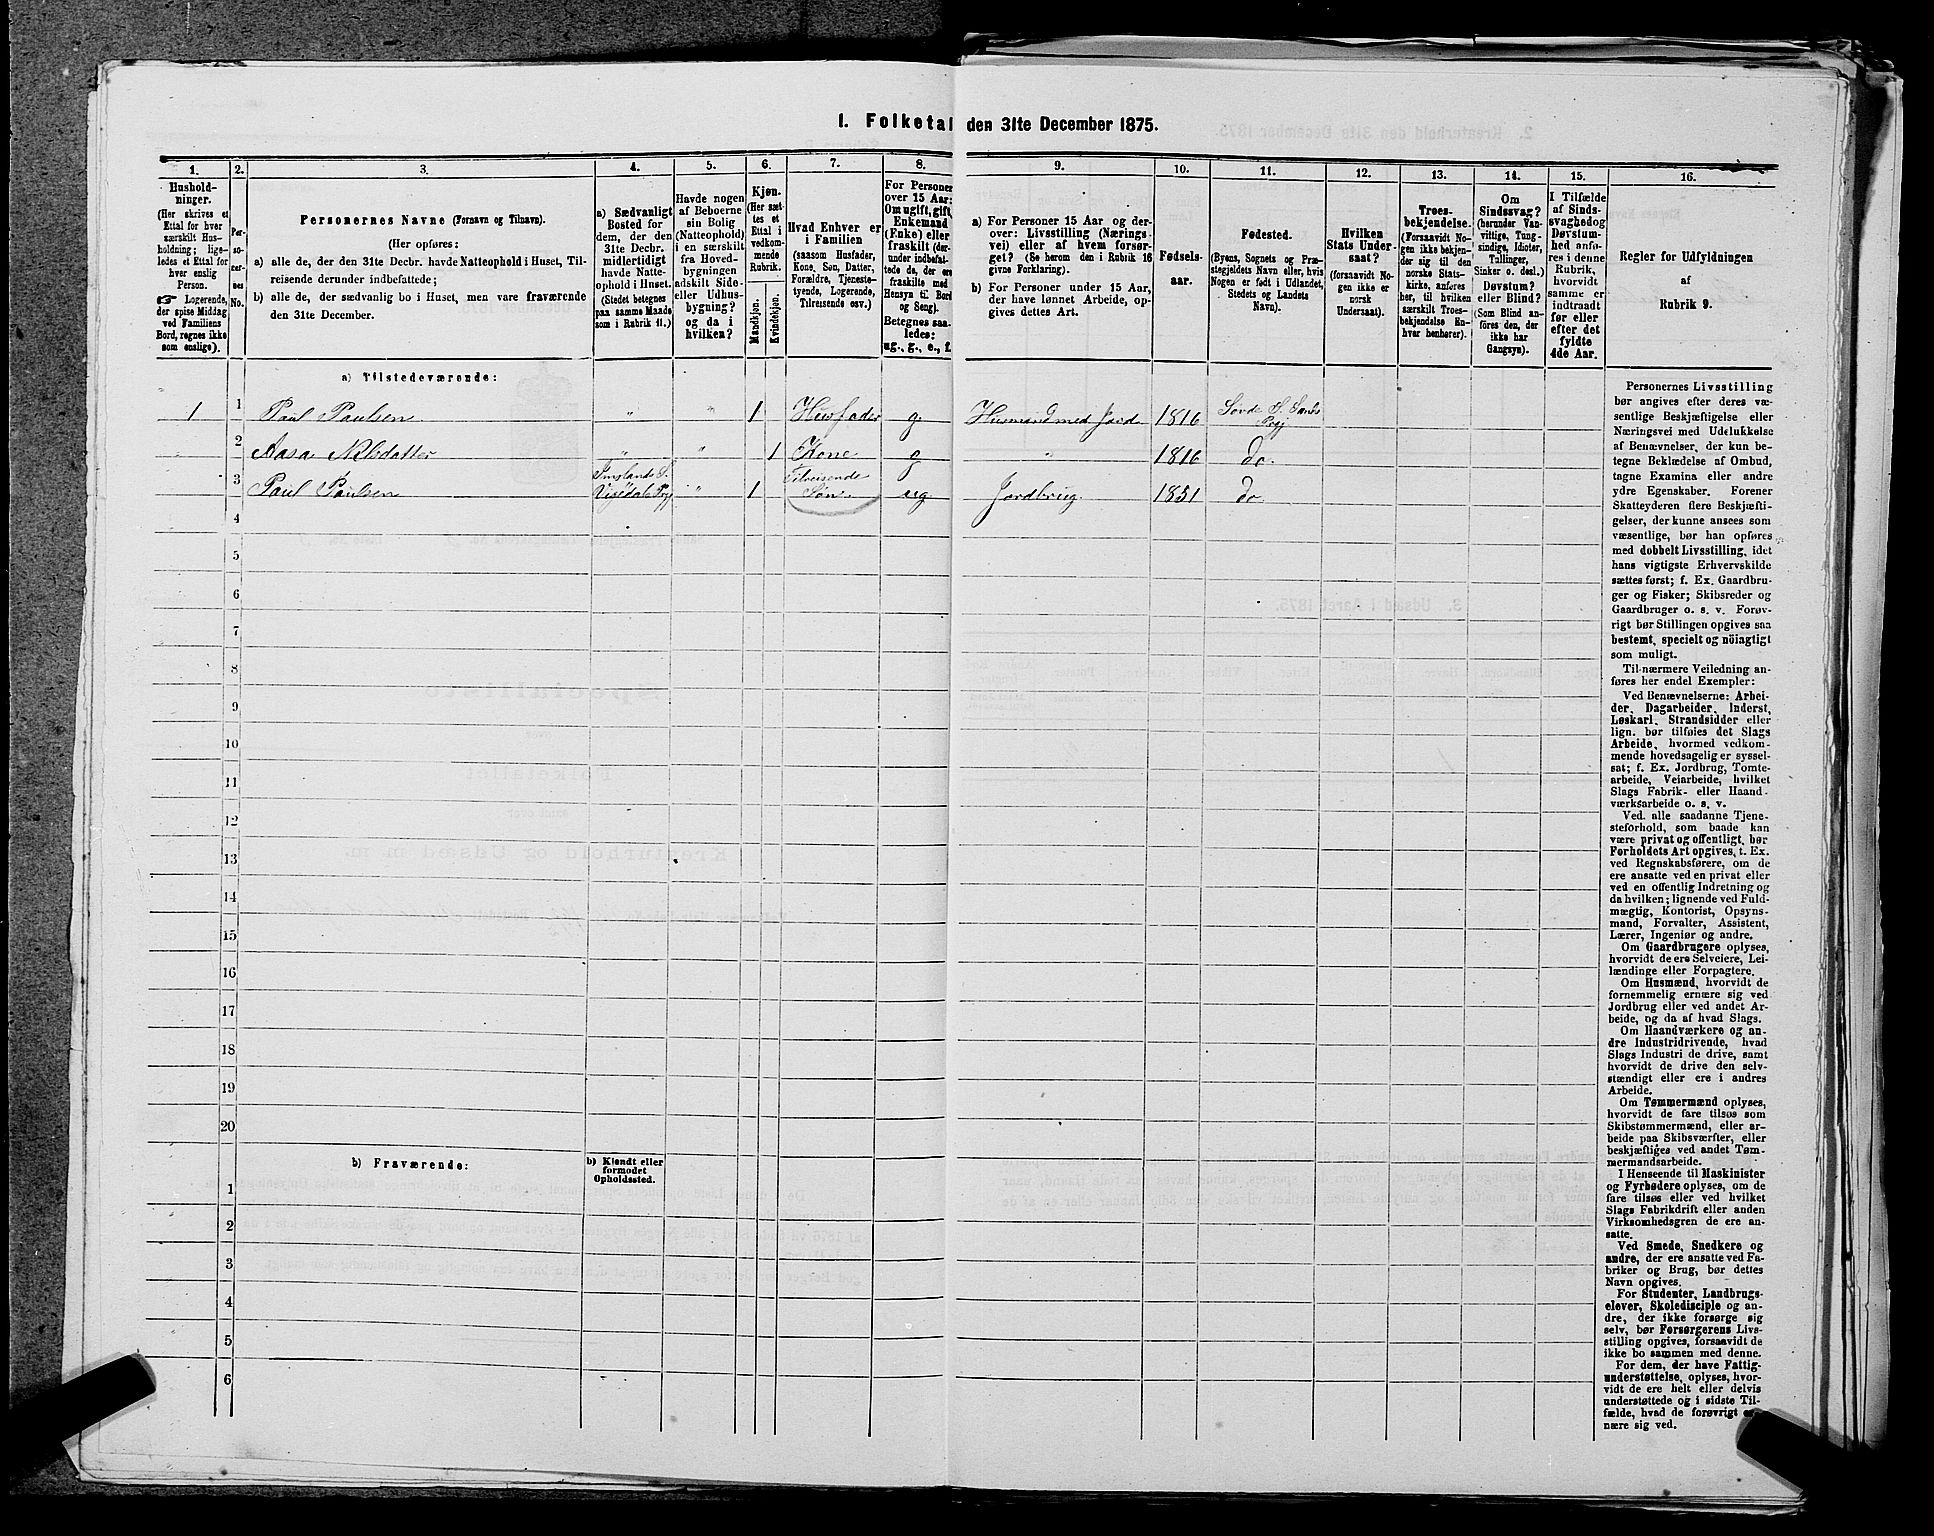 I. Folketal den 31te December 1875.
1. 2. 3. 4. 5. 6. 7. 8. 9. 10. 11. 12. 13. 14. 15. 16.
Hushold-
ninger.
(Her skrives et
Ettal for hver
særskilt Hus-
holdning; lige-
ledes et Ettal for
hver enslig
Person.
☞ Logerende,
der spise Middag
ved Familiens
Bord, regnes ikke
som enslige).
Per-
so-
ner-
nes
No.
Personernes Navne (Fornavn og Tilnavn).
(Her opføres:
a) alle de, der den 31te Decbr. havde Natteophold i Huset, Til-
reisende derunder indbefattede;
b) alle de, der sædvanlig bo i Huset, men vare fraværende
den 31te December.
a) Sædvanligt
Bosted for
dem, der den
31te Decbr.
midlertidigt
havde Natte-
ophold i Huset.
(Stedet betegnes
paa samme Maade
som i Rubrik 11.)
Havde nogen
af Beboerne
sin Bolig
(Natteophold)
i en særskilt
fra Hoved-
bygningen
adskilt Side-
eller Udhus-
bygning?
og da i
hvilken?
Kjøn.
(Her sæt-
tes et
Ettal i
vedkom-
mende
Rubrik.
Mandkjøn.
Kvindekjøn.
Hvad Enhver er
i Familien
(saasom Husfader,
Kone, Søn, Datter,
Forældre, Tjeneste-
tyende, Logerende,
Tilreisende osv.)
For Personer
over 15 Aar:
Om ugift, gift,
Enkemand
(Enke) eller
fraskilt (der-
under indbefat-
tede de, der ere
fraskilte med
Hensyn til Bord
og Seng).
Betegnes saa-
ledes:
ug., g., e., f.
a) For Personer 15 Aar og der-
over: Livsstilling (Nærings-
vei) eller af hvem forsør-
get? (Se herom den i Rubrik 16
givne Forklaring).
b) For Personer under 15 Aar,
der have lønnet Arbeide, op-
gives dettes Art.
Fødsels-
aar.
Fødested.
(Byens, Sognets og Præ-
stegjeldets Navn eller, hvis
Nogen er født i Udlandet,
Stedets og Landets
Navn).
Hvilken
Stats Under-
saat?
(forsaavidt No-
gen ikke er
norsk
Undersaat).
Troes-
bekjendelse.
(Forsaavidt No-
gen ikke bekjen-
der sig til den
norske Stats-
kirke, anføres
her, til hvilken
særskilt Troes-
bekjendelse En-
hver henhører).
Om
Sindssvag?
(herunder Van-
vittige, Tung-
sindige, Idioter,
Tullinger,
Sinker o. desl.)
Døvstum?
eller Blind?
(Som Blind an-
føres den, der
ikke har
Gangsyn).
I Tilfælde
af Sinds-
svaghed og
Døvstum-
hed anfø-
res i denne
Rubrik,
hvorvidt
samme er
indtraadt
før eller
efter det
fyldte
4de Aar.
Regler for Udfyldningen
af
Rubrik 9.
a) Tilstedeværende:
1 1 Paul Paulsen " " 1 Husfader g. Husmand med Jord 1816 Søvde S. Sands Prgj
2 Aasa Nilsdatter " " 1 Kone g " 1816 do.
3 Paul Paulsen Imslands S. Vigedals Prgj " 1 Tilreisende Søn. ug Jordbrug 1851 do
4
5
6
7
8
9
10
11
12
13
14
15
16
17
18
19
20
b) Fraværende:
b) Kjendt eller
formodet
Opholdssted.
1
2
3
4
5
6
Personernes Livsstilling
bør angives efter deres væ-
sentlige Beskjæftigelse eller
Næringsvei med Udelukkelse
af Benævnelser, der kun be-
tegne Beklædelse af Ombud,
tagne Examina eller andre
ydre Egenskaber. Forener
Skatteyderen flere Beskjæfti-
gelser, der kunne ansees som
væsentlige, bør han opføres
med dobbelt Livsstilling, idet
hans vigtigste Erhvervskilde
sættes først; f. Ex. Gaardbru-
ger og Fisker; Skibsreder og
Gaardbruger o. s. v. Forøv-
rigt bør Stillingen opgives saa
bestemt, specielt og nöiagtigt
som muligt.
Til nærmere Veiledning an-
føres her endel Exempler:
Ved Benævnelserne: Arbei-
der, Dagarbeider, Inderst,
Løskarl, Strandsidder eller
lign. bør tilføies det Slags
Arbeide, hvormed vedkom-
mende hovedsagelig er syssel-
sat; f. Ex. Jordbrug, Tomte-
arbeide, Veiarbeide, hvilket
Slags Fabrik- eller Haand-
værksarbeide o. s. v.
Ved alle saadanne Tjene-
steforhold, som baade kan
være privat og offentligt, bør
Forholdets Art opgives, t. Ex.
ved Regnskabsførere, om de
ere ansatte ved en privat eller
ved en offentlig Indretning og
da hvilken; lignende ved Fuld-
mægtig, Kontorist, Opsyns-
mand, Forvalter, Assistent,
Lærer, Ingeniør og andre.
Om Gaardbrugere oplyses,
hvorvidt de ere Selveiere, Lei-
lændinge eller Forpagtere.
Om Husmænd, hvorvidt de
fornemmelig ernære sig ved
Jordbrug eller ved andet Ar-
beide, og da af hvad Slags.
Om Haandværkere og an-
dre Industridrivende, hvad
Slags Industri de drive, samt
hvorvidt de drive den selv-
stændigt eller ere i andres
Arbeide.
Om Tømmermænd oplyses,
hvorvidt de fare tilsøs som
Skibstømmermænd, eller ar-
beide paa Skibsværfter, eller
beskjæftiges ved andet Tøm-
mermandsarbeide.
I Henseende til Maskinister
og Fyrbødere oplyses, om de
fare tilsøs eller ved hvilket
Slags Fabrikdrift eller anden
Virksomhedsgren de ere an-
satte.
Ved Smede, Snedkere og
andre, der ere ansatte ved Fa-
briker og Brug, bør dettes
Navn opgives.
For Studenter, Landbrugs-
elever, Skoledisciple og an-
dre, der ikke forsørge sig
selv, bør Forsørgerens Livs-
stilling opgives, forsaavidt de
ikke bo sammen med denne.
For dem, der have Fattig-
understøttelse, oplyses, hvor-
vidt de ere helt eller delvis
understøttede og i sidste Til-
fælde, hvad de forøvrigt er-
nære sig ved.